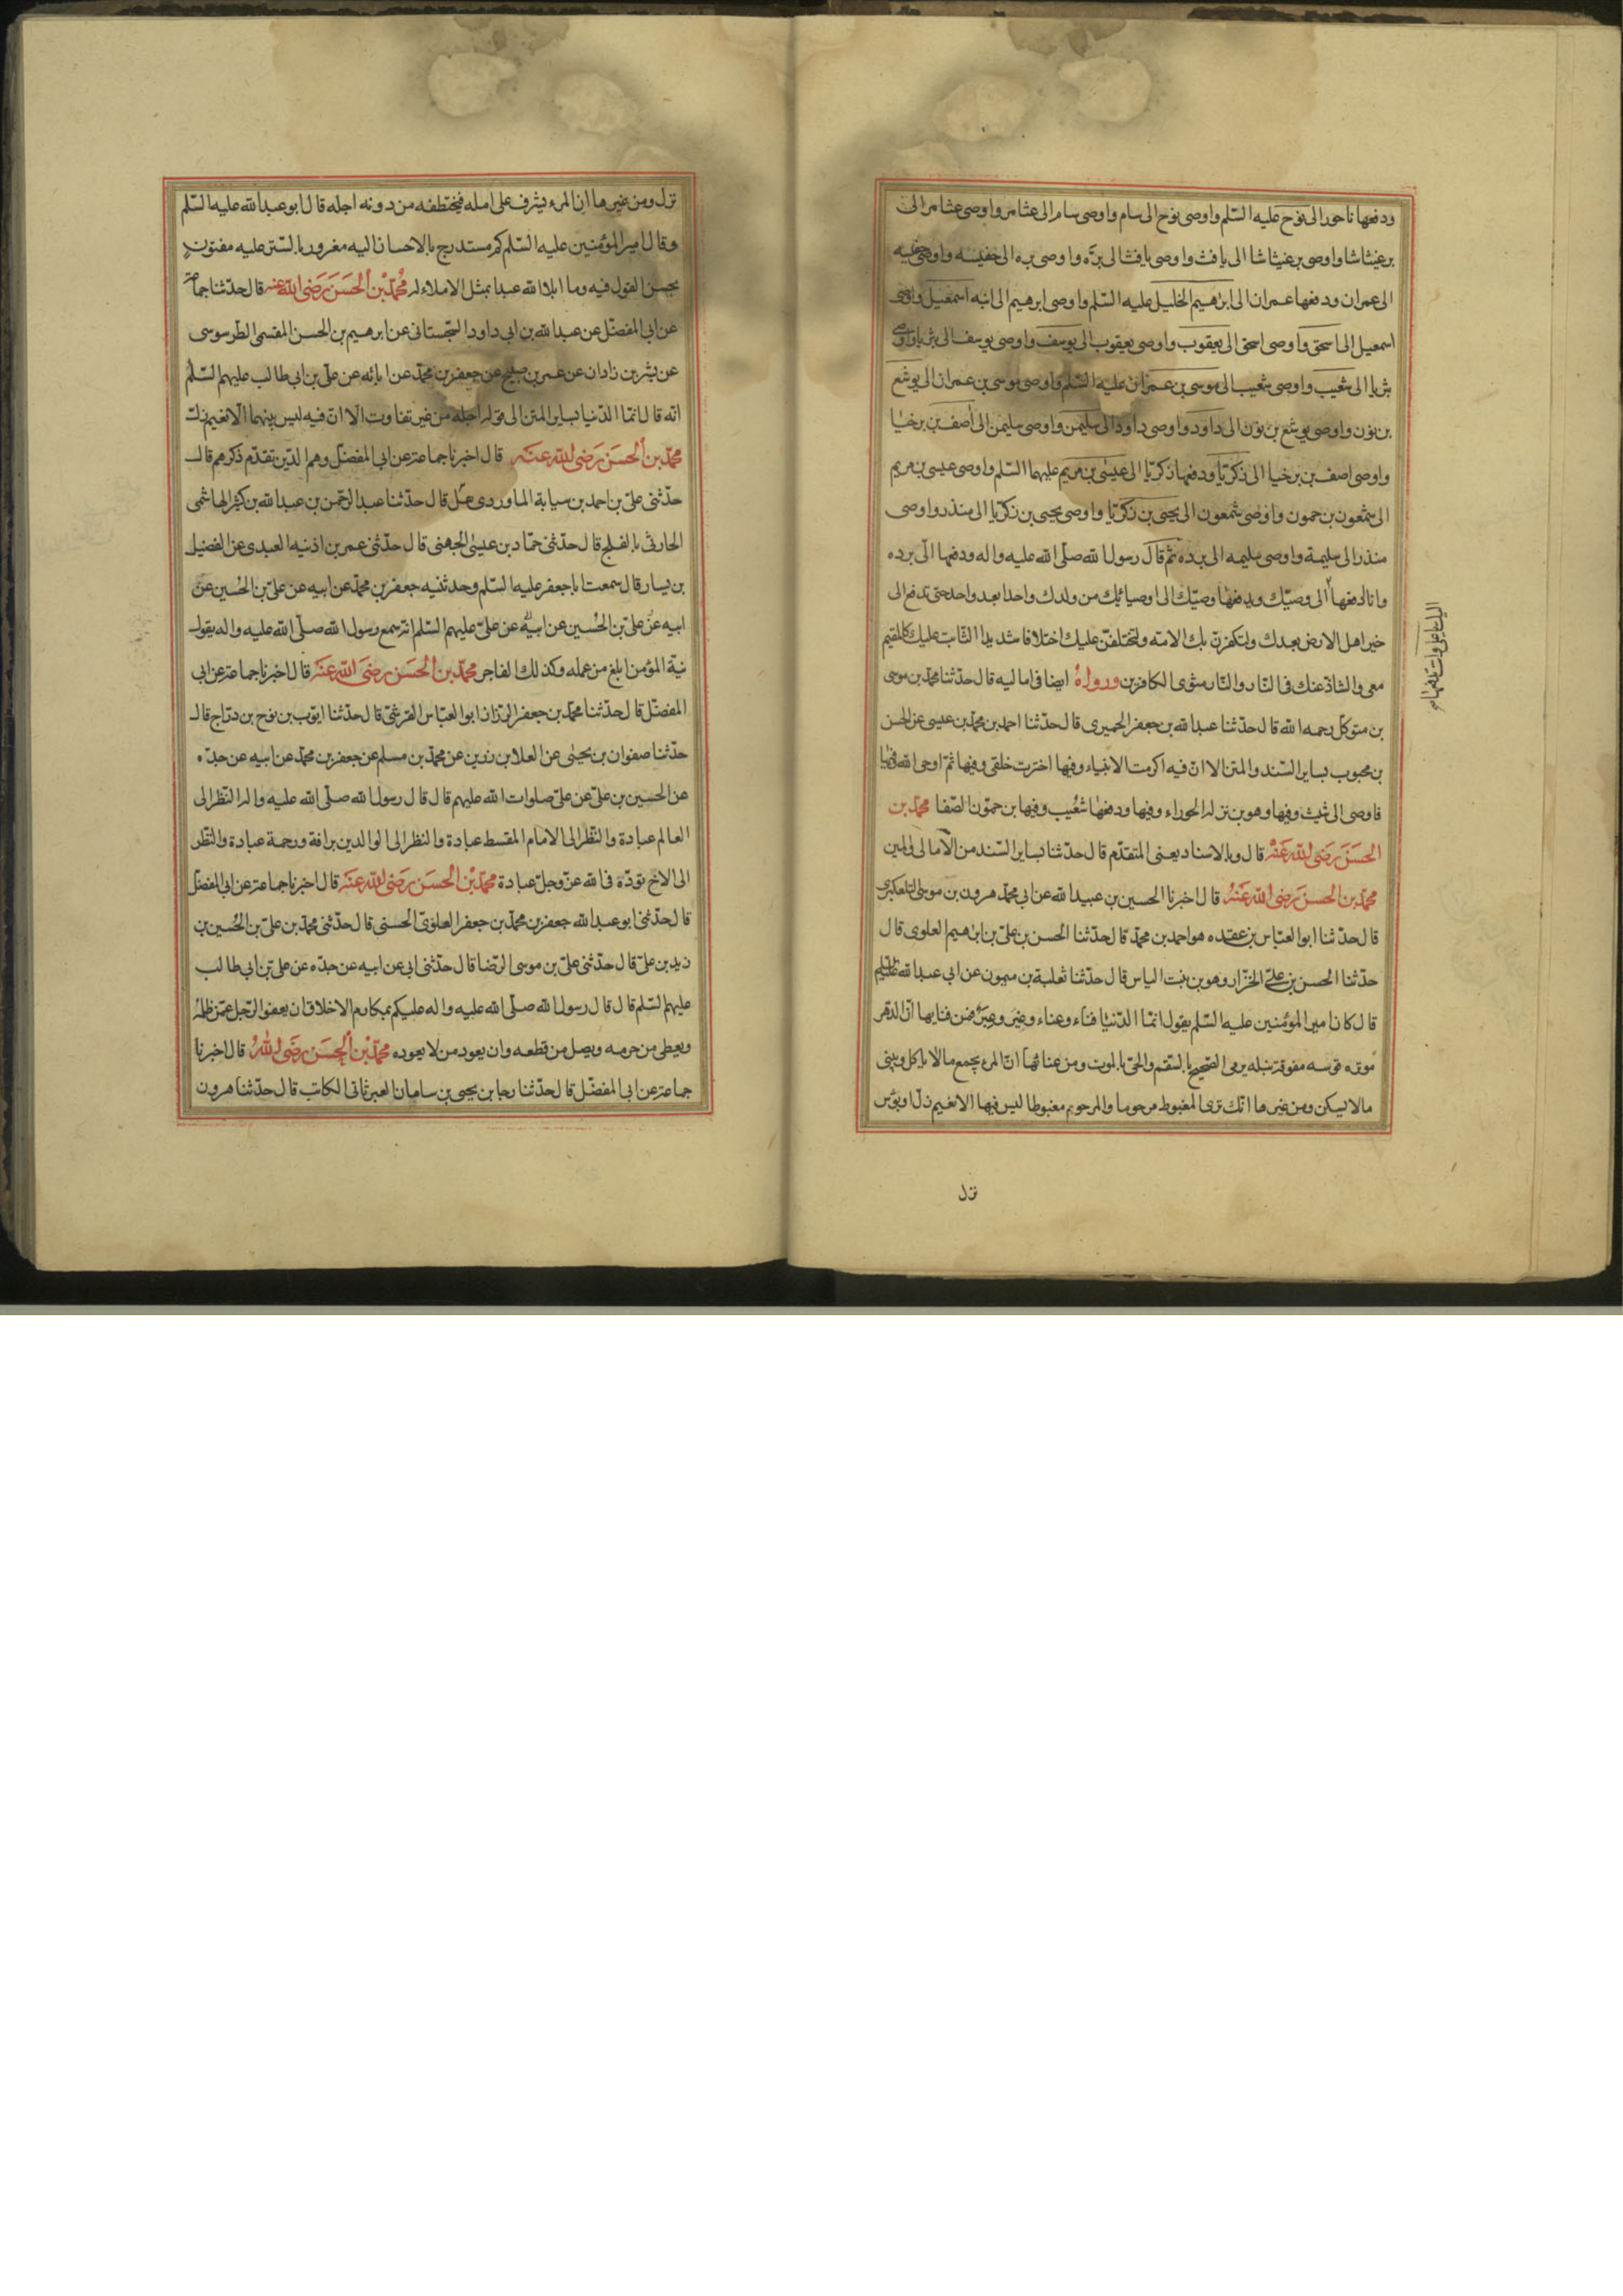 ودفعها ناحور الى نوح عليه السّلم واوصى نوح الى سام واوصى سام الى عثامر واوصى عثامر الى
برعيثاشا واوصى برعيثاشا الى يافث واوصى يافث الى برّه واوصى بره الى جفيسه واوصى جفيسه
الى عمران ودفعها عمران الى ابرهيم الخليل عليه السّلم واوصى ابرهيم الى ابنه اسمعيل واوصى
اسمعيل الى اسحق واوصى اسحق الى يعقوب واوصى يعقوب الى يوسف واوصى يوسف الى بثريا واوصى
بثريا الى شعيب واوصى شعيب الى موسى بن عمران عليه السّلم واوصى موسى بن عمران الى يوشع
بن نون واوصى يوشع بن نون الى داود واوصى داود الى سليمن واوصى سليمن الى اصف بن برخيا
واوصى اصف بن برخيا الى زكريّا ودفعها زكريّا الى عيسى بن مريم عليهما السّلم واوصى عيسى بن مريم
الى شمعون بن حمون واوصى شمعون الى يحيى بن زكريّا واوصى يحيى بن زكريّا الى منذر واوصى
منذر الى سليمة واوصى سليمه الى برده ثم قال رسول الله صلّى الله عليه واله ودفعها الىّ برده
وانا ادفعها الى وصيّك ويدفعها وصيّك الى اوصيائك من ولدك واحدا بعد واحد حتى تدفع الى
خير اهل الارض بعدك ولتكفرنّ بك الامّه ولتختلفنّ عليك اختلافا شديدا الثابت عليك كالمقيم
معى والشاذّ عنك فى النّار والنّار مثوى الكافرين ورواه ايضا فى اماليه قال حدّثنا محمّد بن موسى
بن متوكّل رحمه الله قال حدّثنا عبد الله بن جعفر الحميرى قال حدّثنا احمد بن محمّد بن عيسى عن الحسن
بن محبوب بساير السّند والمتن الا انّ فيه اكرمت الانبياء وفيها اخترت خلقى وفيها ثمّ اوحى الله
فاوصى الى شيث وفيها وهو بن نزله الحوراء وفيها ودفعها شعيب وفيها بن حمّون الصّفا محمّد بن
الحسن رضى الله عنه قال وبالاسناد يعنى المتقدّم قال حدّثنا بساير السّند من الامالى
محمّد بن الحسن رضى الله عنه قال اخبرنا الحسين بن عبيد الله عن ابى محمّد هرون بن موسى التلعكبرى
قال حدّثنا ابو العبّاس بن عقده هو احمد بن محمّد قال حدّثنا الحسن بن علىّ بن ابرهيم العلوى قال
حدّثنا الحسن بن علىّ الخزّاز وهو بن بنت الياس قال حدّثنا ثعلبة بن ميمون عن ابى عبد الله
قال كان امير المؤمنين عليه السّلم يقول انمّا الدّنيا فناء وعناء وغير وعبر فمن فنايها انّ الدّهر
موتر قوسه مفوّق نبله يرمى الصّحيح بالسّقم والحىّ بالموت ومن عنائها انّ المرء يجمع مالا ياكل ويبنى
مالا يسكن ومن غيرها انّك ترى المغبوط مرحوما والمرحوم مغبوطا ليس فيها الا نعيم زلّ او بؤس
نزل
نزل ومن عبرها انّ المرء يشرف على امله فيختطفه من دونه اجله قال ابو عبد الله عليه السّلم
وقال امير المؤمنين عليه السّلم كم مستدرج بالاحسان اليه مغرور بالستر عليه مفتون
بحسن القول فيه وما ابلا الله عبدا بمثل الاملاء له محمّد بن الحسن رضى الله عنه قال حدّثنا جماعة
عن ابى المفضّل عن عبد الله بن ابى داود السّجستانى عن ابرهيم بن الحسن المقسمى الطرسوسى
عن بشر بن زادان عن عمر بن صبيح عن جعفر بن محمّد عن ابائه عن علىّ بن ابى طالب عليهم السّلم
انّه قال انمّا الدّنيا بساير المتن الى قوله اجله من غير تفاوت الّا انّ فيه ليس بينهما الّا نعيم زلّ
محمّد بن الحسن رضى الله عنه قال اخبرنا جماعة عن ابى المفضّل وهم الّذين تقدّم ذكرهم قال
حدّثنى علىّ بن احمد بن سيابة الماوردى قال حدّثنا عبد الرّحمن بن عبد الله بن كثير الهاشمى
الحارثى بالفلج قال حدّثنى حمّاد بن عيسى الجهنى قال حدّثنى عمر بن اذنيه العبدى عن الفضيل
بن يسار قال سمعت ابا جعفر عليه السّلم وحدثنيه جعفر بن محمّد عن ابيه عن علىّ بن الحسين عن
ابيه عن علىّ بن الحسين عن ابيه عن علىّ عليهم السّلم انّه سمع رسول الله صلّى الله عليه واله يقول
نيّة المؤمن ابلغ من عمله وكذلك الفاجر محمّد بن الحسن رضى الله عنه قال اخبرنا جماعة عن ابى
المفضّل قال حدّثنا محمّد بن جعفر الرزاز ابو العبّاس القرشىّ قال حدّثنا ايّوب بن نوح بن درّاج قال
حدّثنا صفوان بن يحيى عن العلا بن رزين عن محمّد بن مسلم عن جعفر بن محمّد عن ابيه عن جدّه
عن الحسين بن علىّ عن علىّ صلوات الله عليهم قال قال رسول الله صلّى الله عليه واله النّظر الى
العالم عبادة والنّظر الى الامام المقسط عبادة والنظر الى الوالدين برافة ورحمة عبادة والنّظر
الى الاخ تودّه فى الله عزّ وجلّ عبادة محمّد بن الحسن رضى الله عنه قال اخبرنا جماعة عن ابى المفضّل
قال حدّثنى ابو عبد الله جعفر بن محمّد بن جعفر العلوىّ الحسنى قال حدّثنى محمّد بن علىّ بن الحسين بن
زيد بن علىّ قال حدّثنى علىّ بن موسى الرّضا قال حدّثنى ابى عن ابيه عن جدّه عن علىّ بن ابى طالب
عليهم السّلم قال قال رسول الله صلّى الله عليه واله عليكم بمكارم الاخلاق ان يعفو الرّجل عمّن ظلمه
ويعطى من حرمه ويصل من قطعه وان يعود من لا يعوده محمّد بن الحسن رضى الله قال اخبرنا
جماعة عن ابى المفضّل قال حدّثنا رجا بن يحيى بن سامان العبرثانى الكاتب قال حدّثنا هرون